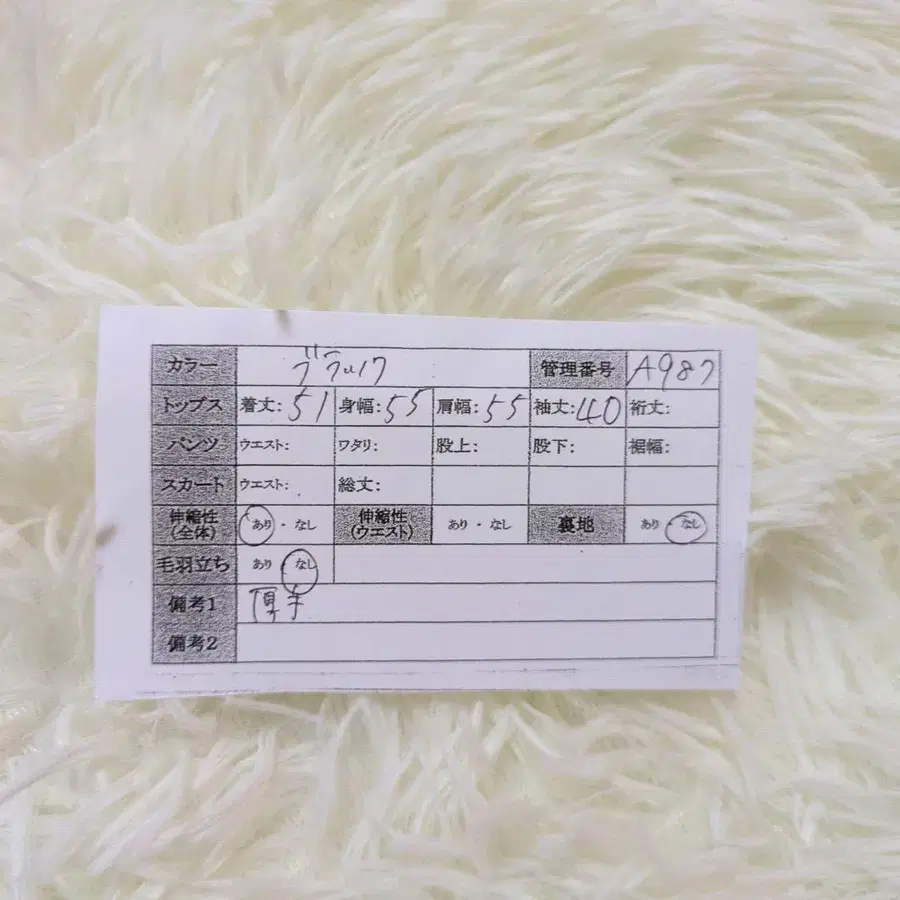 カラー ブラック 管理番号 A987
トップス 着丈: 51 身幅: 55 肩幅: 55 袖丈: 40 裄丈:
パンツ ウエスト: ワタリ: 股上: 股下: 裾幅:
スカート ウエスト: 総丈:
伸縮性(全体) あり ・ なし 伸縮性(ウエスト) あり ・ なし 裏地 あり ・ なし
毛羽立ち あり ・ なし
備考1 厚手
備考2